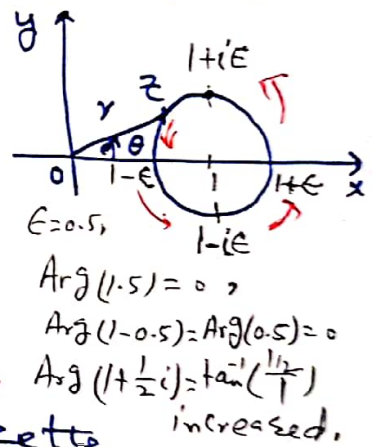 y
1+iε
r
z
θ
0
1-ε
1
1+ε
x
1-iε
ε=0.5,
Arg(1.5)=0,
Arg(1-0.5)=Arg(0.5)=0
Arg(1+½i)=tan⁻¹(½/1)
increased.